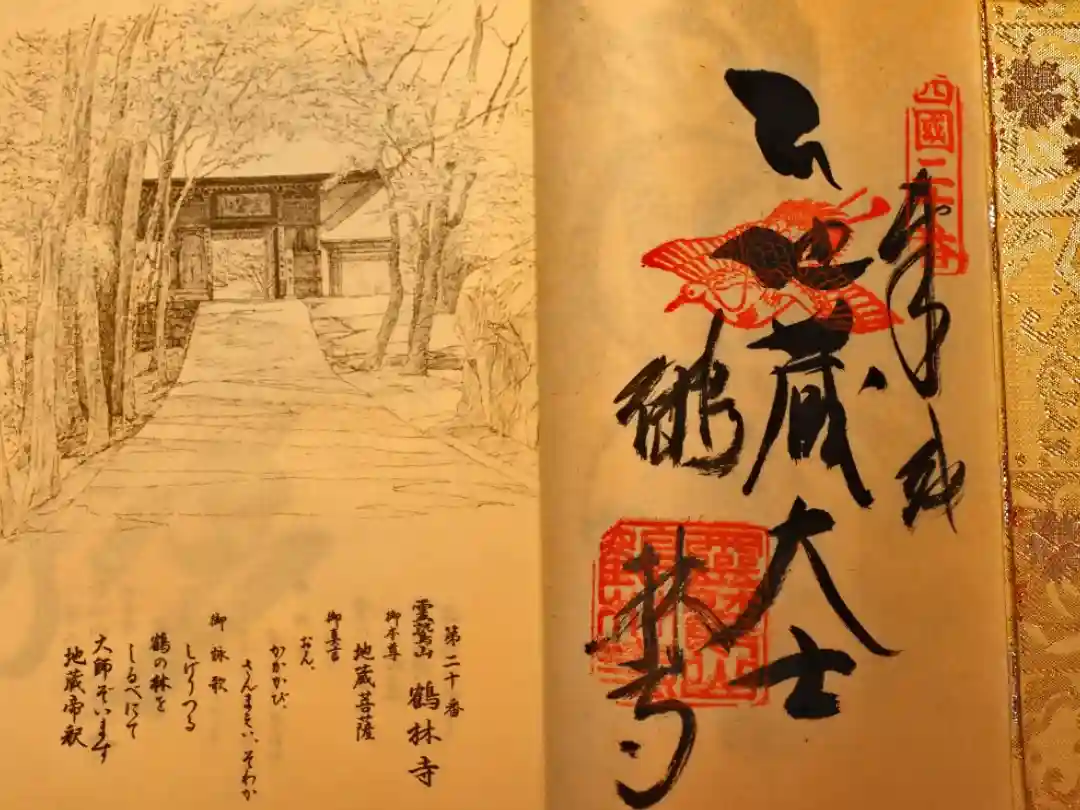 四國二十番
奉納
地蔵大士
鶴林寺
第二十番
靈鷲山 鶴林寺
御本尊
地蔵菩薩
御真言
おん、
かかかび、
さんまえい、そわか
御詠歌
しげりつる
鶴の林を
しるべにて
大師ぞいます
地蔵帝釈